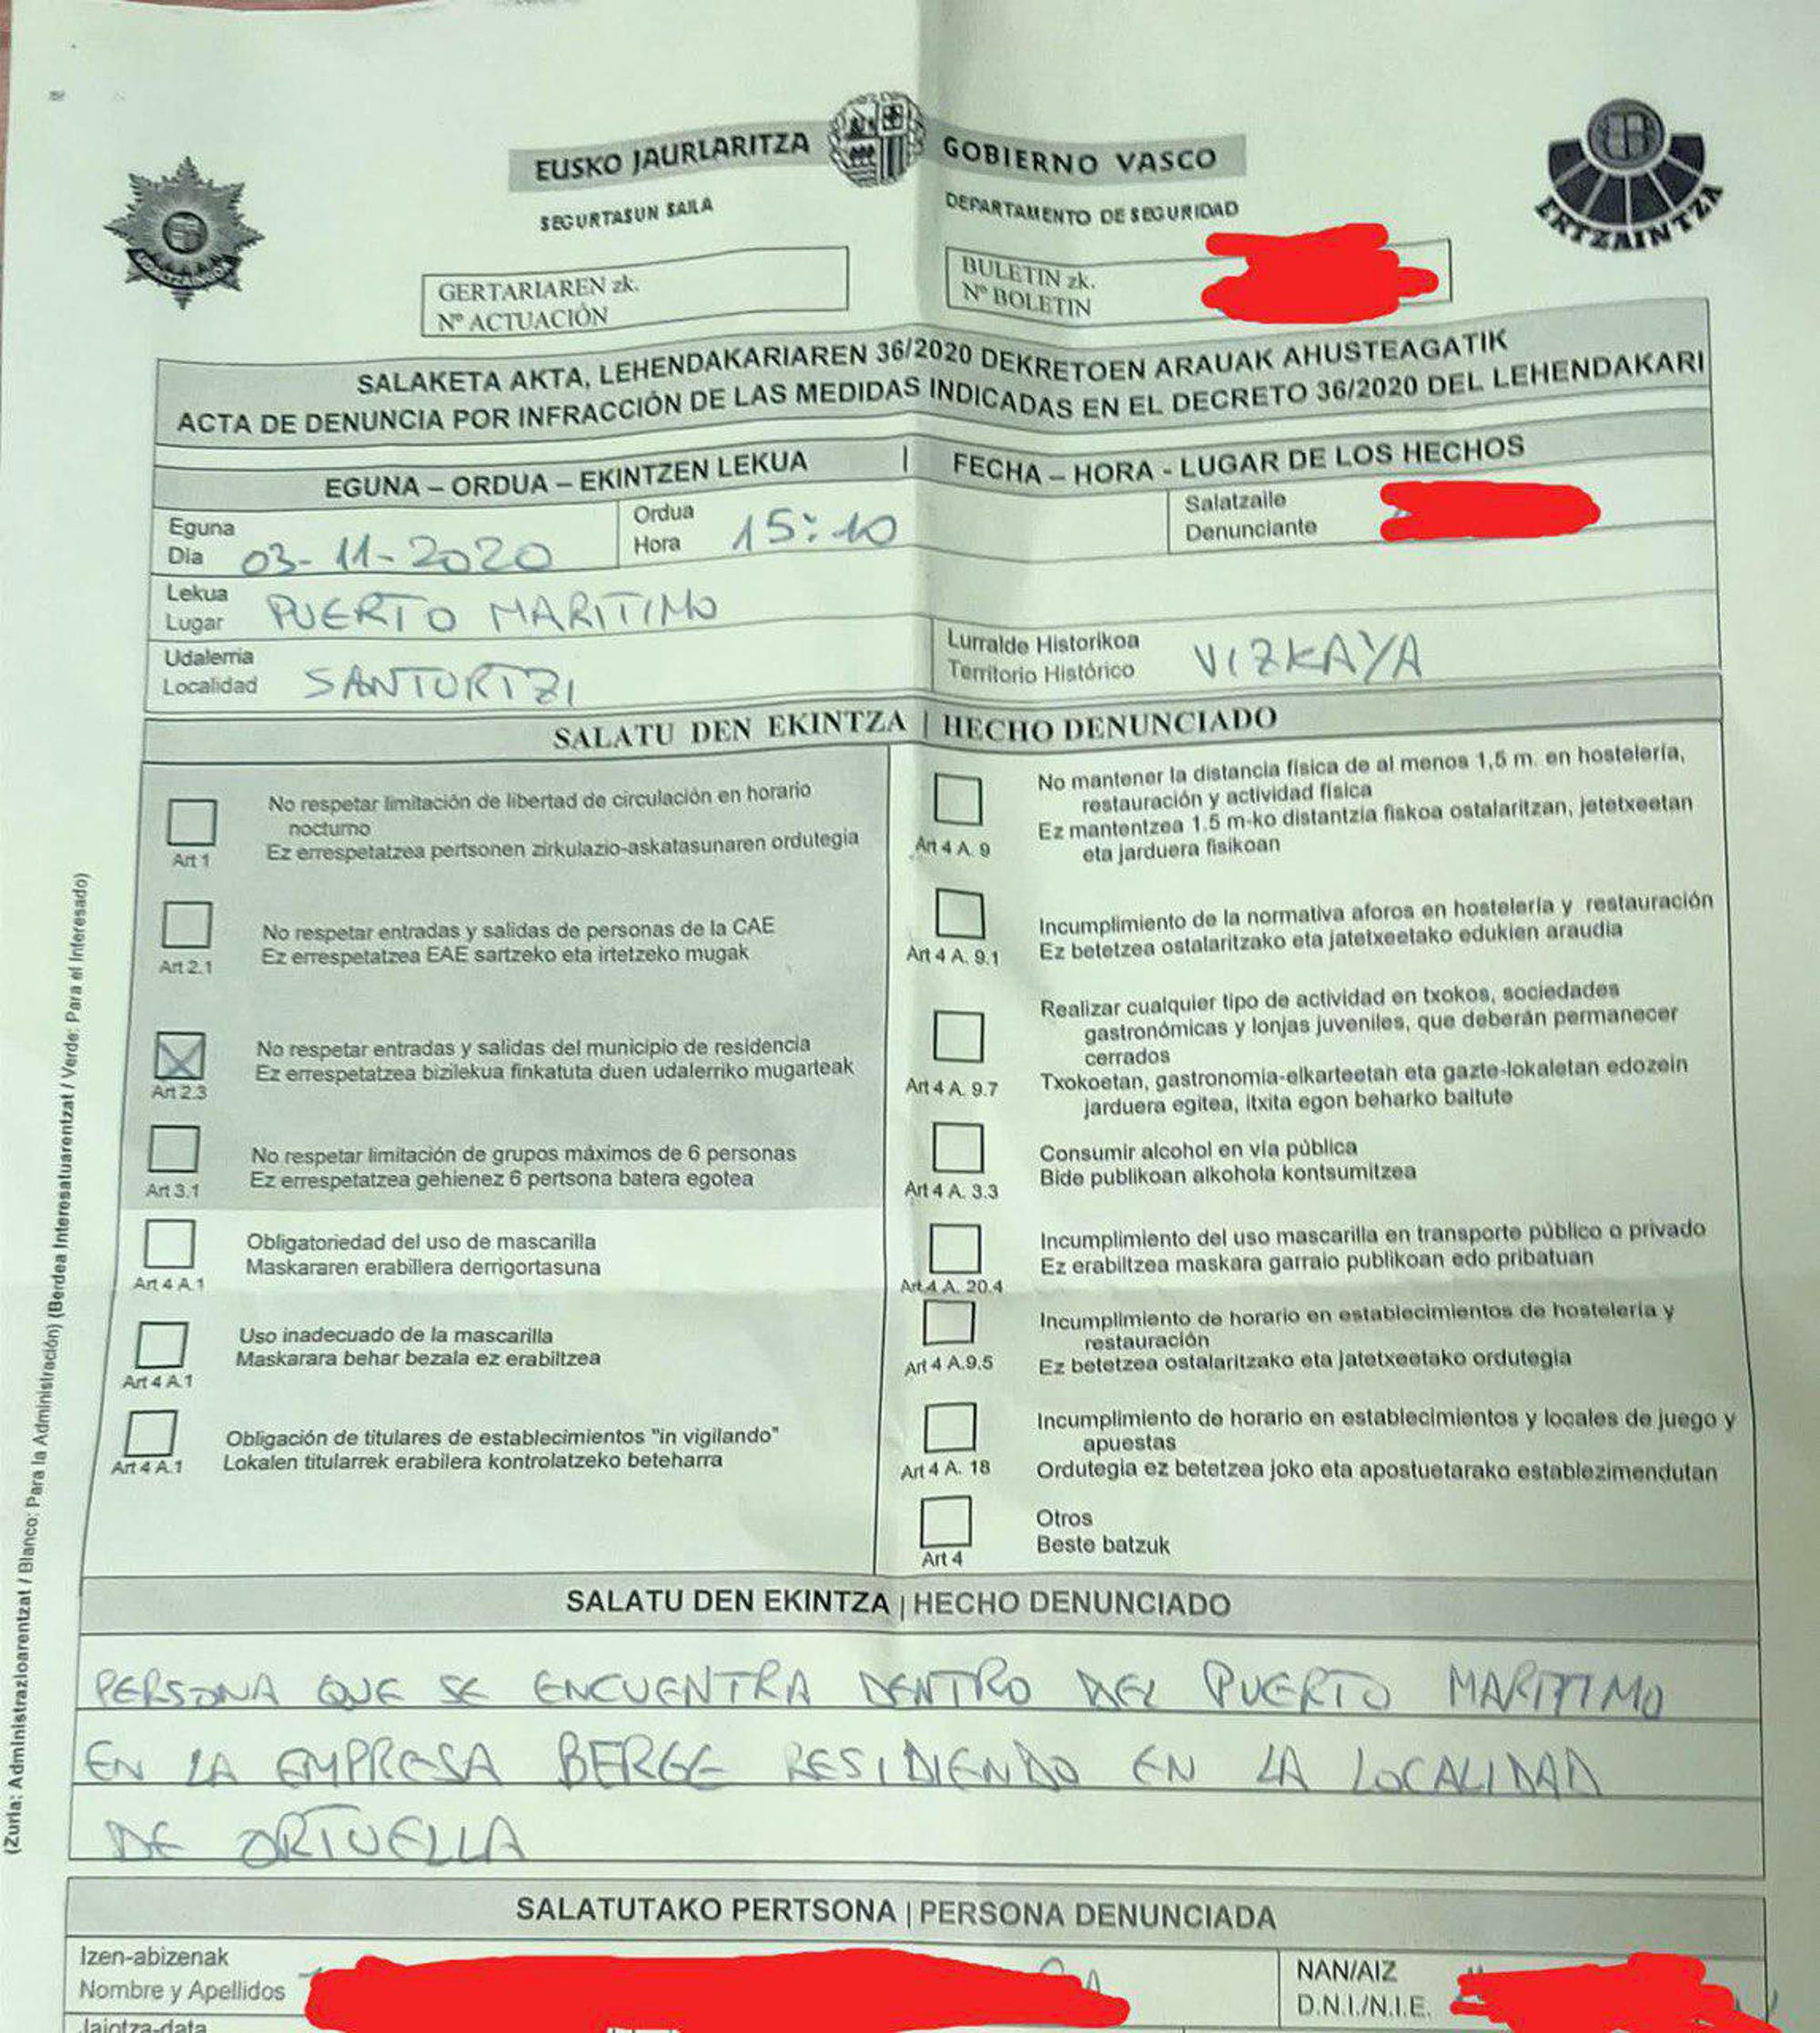 EUSKO JAURLARITZA
GOBIERNO VASCO
SEGURTASUN SAILA
DEPARTAMENTO DE SEGURIDAD
ERTZAINTZA
GERTARIAREN zk.
Nº ACTUACIÓN
BULETIN zk.
Nº BOLETIN
SALAKETA AKTA, LEHENDAKARIAREN 36/2020 DEKRETOEN ARAUAK AHUSTEAGATIK
ACTA DE DENUNCIA POR INFRACCIÓN DE LAS MEDIDAS INDICADAS EN EL DECRETO 36/2020 DEL LEHENDAKARI
EGUNA – ORDUA – EKINTZEN LEKUA | FECHA – HORA - LUGAR DE LOS HECHOS
Eguna
Dia 03-11-2020
Ordua
Hora 15:10
Salatzaile
Denunciante
Lekua
Lugar PUERTO MARITIMO
Udalerria
Localidad SANTURTZI
Lurralde Historikoa
Territorio Histórico VIZKAYA
SALATU DEN EKINTZA | HECHO DENUNCIADO
No respetar limitación de libertad de circulación en horario
nocturno
Art 1 Ez errespetatzea pertsonen zirkulazio-askatasunaren ordutegia
No respetar entradas y salidas de personas de la CAE
Ez errespetatzea EAE sartzeko eta irtetzeko mugak
Art 2.1
No respetar entradas y salidas del municipio de residencia
Ez errespetatzea bizilekua finkatuta duen udalerriko mugarteak
Art 2.3
No respetar limitación de grupos máximos de 6 personas
Ez errespetatzea gehienez 6 pertsona batera egotea
Art 3.1
Obligatoriedad del uso de mascarilla
Maskararen erabillera derrigortasuna
Art 4 A.1
Uso inadecuado de la mascarilla
Maskarara behar bezala ez erabiltzea
Art 4 A.1
Obligación de titulares de establecimientos "in vigilando"
Lokalen titularrek erabilera kontrolatzeko beteharra
Art 4 A.1
No mantener la distancia física de al menos 1,5 m. en hostelería,
restauración y actividad física
Ez mantentzea 1.5 m-ko distantzia fiskoa ostalaritzan, jetetxeetan
eta jarduera fisikoan
Art 4 A. 9
Incumplimiento de la normativa aforos en hostelería y restauración
Ez betetzea ostalaritzako eta jatetxeetako edukien araudia
Art 4 A. 9.1
Realizar cualquier tipo de actividad en txokos, sociedades
gastronómicas y lonjas juveniles, que deberán permanecer
cerrados
Art 4 A. 9.7 Txokoetan, gastronomia-elkarteetan eta gazte-lokaletan edozein
jarduera egitea, itxita egon beharko baitute
Consumir alcohol en vía pública
Bide publikoan alkohola kontsumitzea
Art 4 A. 3.3
Incumplimiento del uso mascarilla en transporte público o privado
Ez erabiltzea maskara garraio publikoan edo pribatuan
Art 4 A. 20.4
Incumplimiento de horario en establecimientos de hostelería y
restauración
Art 4 A.9.5 Ez betetzea ostalaritzako eta jatetxeetako ordutegia
Incumplimiento de horario en establecimientos y locales de juego y
apuestas
Art 4 A. 18 Ordutegia ez betetzea joko eta apostuetarako establezimendutan
Otros
Beste batzuk
Art 4
SALATU DEN EKINTZA | HECHO DENUNCIADO
PERSONA QUE SE ENCUENTRA DENTRO DEL PUERTO MARITIMO
EN LA EMPRESA BERGE RESIDIENDO EN LA LOCALIDAD
DE ORTUELLA
SALATUTAKO PERTSONA | PERSONA DENUNCIADA
Izen-abizenak
Nombre y Apellidos
NAN/AIZ
D.N.I./N.I.E.
Jaiotza-data
(Zuria: Administrazioarentzat / Blanco: Para la Administración) (Berdea Interesatuarentzat / Verde: Para el Interesado)